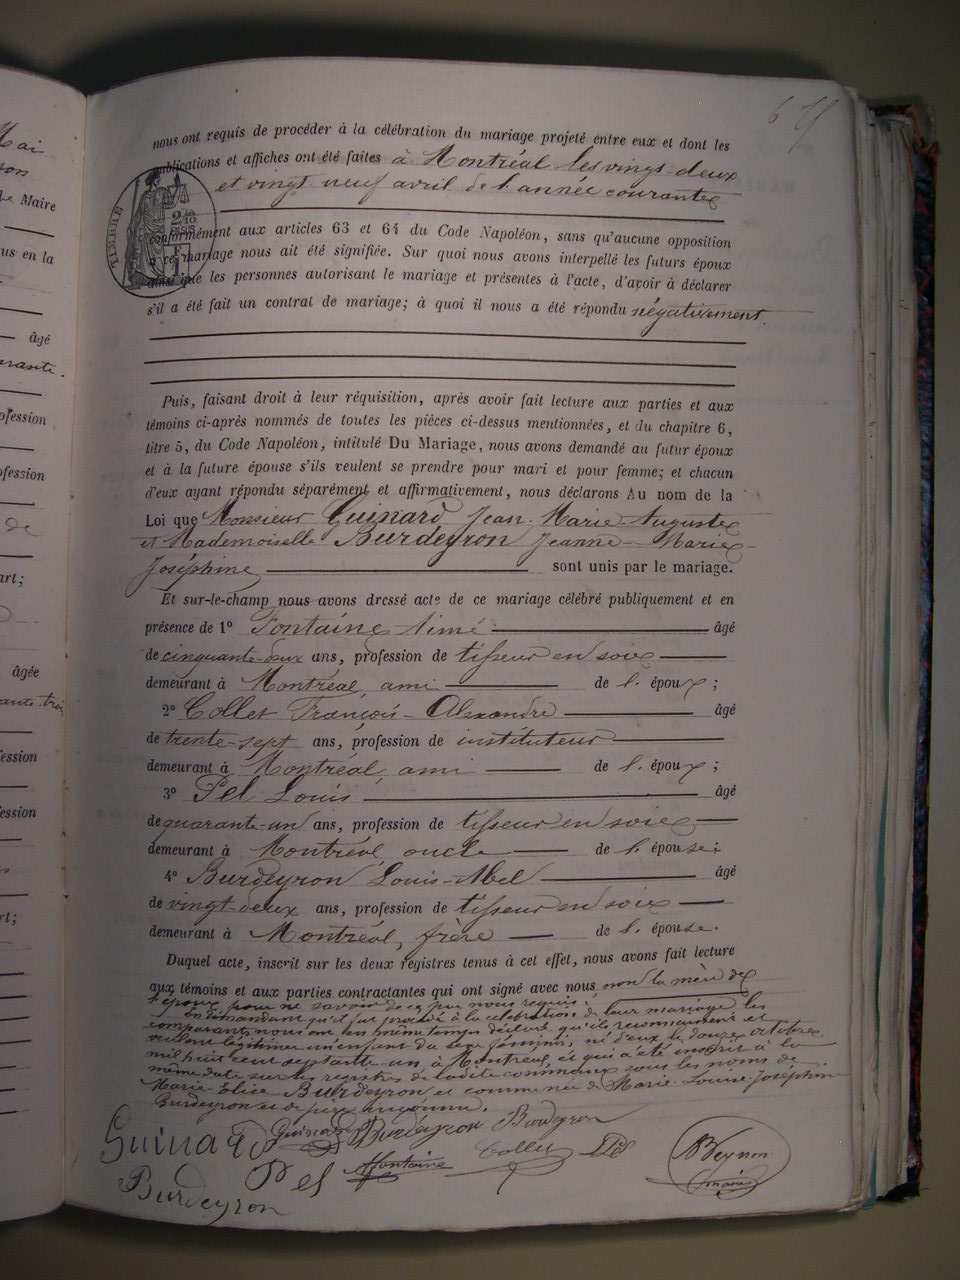 nous ont requis de procéder à la célébration du mariage projeté entre eux et dont les
publications et affiches ont été faites à Montréal les vingt-deux
et vingt neuf avril de l'année courante
TIMBRE
conformément aux articles 63 et 64 du Code Napoléon, sans qu'aucune opposition
à ce mariage nous ait été signifiée. Sur quoi nous avons interpellé les futurs époux
ainsi que les personnes autorisant le mariage et présentes à l'acte, d'avoir à déclarer
s'il a été fait un contrat de mariage; à quoi il nous a été répondu négativement.
Puis, faisant droit à leur réquisition, après avoir fait lecture aux parties et aux
témoins ci-après nommés de toutes les pièces ci-dessus mentionnées, et du chapitre 6,
titre 5, du Code Napoléon, intitulé Du Mariage, nous avons demandé au futur époux
et à la future épouse s'ils veulent se prendre pour mari et pour femme; et chacun
d'eux ayant répondu séparément et affirmativement, nous déclarons Au nom de la
Loi que Monsieur Guinard Jean-Marie-Auguste
et Mademoiselle Burdeyron Jeanne-Marie-
Joséphine sont unis par le mariage.
Et sur-le-champ nous avons dressé acte de ce mariage célébré publiquement et en
présence de 1° Fontaine Aimé âgé
de cinquante-deux ans, profession de tisseur en soie
demeurant à Montréal, ami de l'époux;
2° Collet François-Alexandre âgé
de trente-sept ans, profession de instituteur
demeurant à Montréal, ami de l'époux;
3° Pel Louis âgé
de quarante-un ans, profession de tisseur en soie
demeurant à Montréal, oncle de l'épouse;
4° Burdeyron Louis-Abel âgé
de vingt-deux ans, profession de tisseur en soie
demeurant à Montréal, frère de l'épouse.
Duquel acte, inscrit sur les deux registres tenus à cet effet, nous avons fait lecture
aux témoins et aux parties contractantes qui ont signé avec nous non la mère de
l'époux pour ne savoir de ce par nous requis.
En demandant qu'il fut procédé à la célébration de leur mariage les
comparants nous ont en même temps déclaré qu'ils reconnaissent et
veulent légitimer un enfant du sexe féminin, né d'eux le douze octobre
mil huit cent septante un à Montréal et qui a été inscrit à la
même date sur les registres de ladite commune sous les noms de
Marie-Elise Burdeyron et comme née de Marie-Louise-Joséphine
Burdeyron et de père inconnu.
Guinard Guinard Burdeyron Burdeyron
Burdeyron Pel Afontaine Collet
Beynon
maire